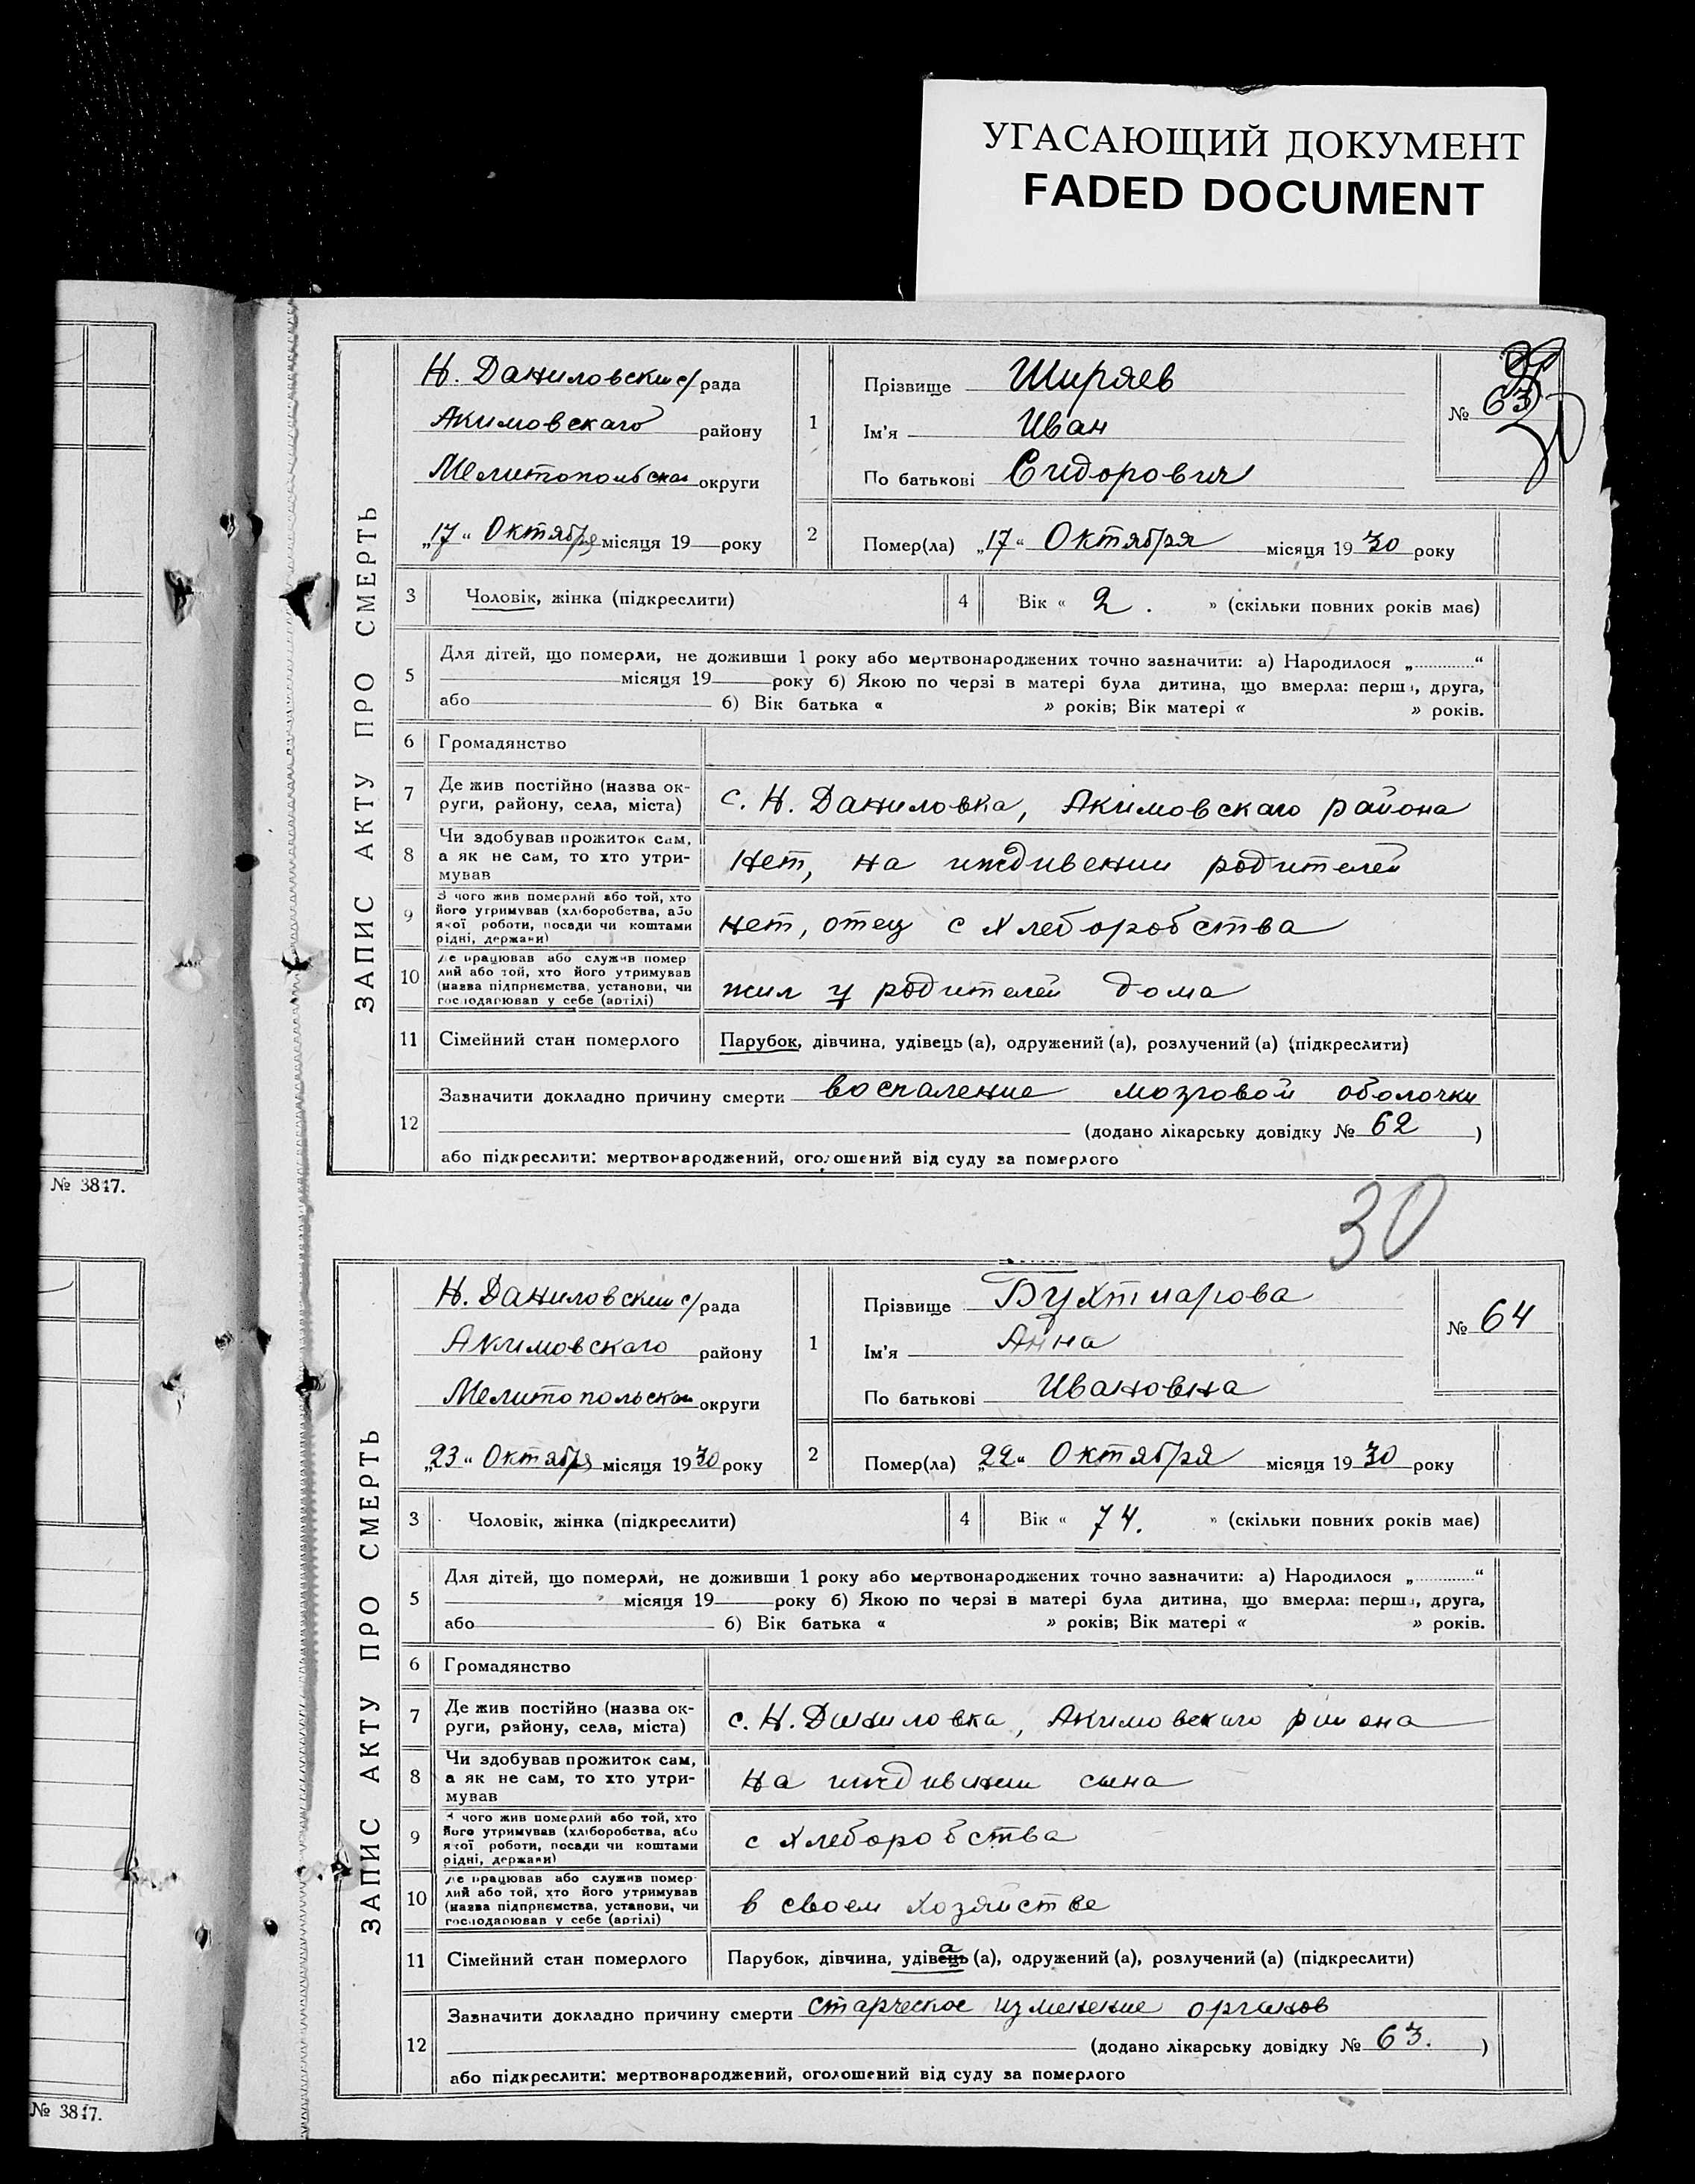 УГАСАЮЩИЙ ДОКУМЕНТ
FADED DOCUMENT
ЗАПИС АКТУ ПРО СМЕРТЬ
Н. Даниловский с/рада
Акимовскаго району
Мелитопольской округи
„17" Октября місяця 19 року
1
Прізвище Ширяев
Ім'я Иван
По батькові Сидорович
№ 63
2
Помер(ла) „17" Октября місяця 1930 року
3 Чоловік, жінка (підкреслити)
4 Вік « 2. » (скільки повних років має)
5 Для дітей, що померли, не доживши 1 року або мертвонароджених точно зазначити: а) Народилося „ "
місяця 19 року б) Якою по черзі в матері була дитина, що вмерла: перша, друга,
або б) Вік батька « » років; Вік матері « » років.
6 Громадянство
7 Де жив постійно (назва ок-
руги, району, села, міста)
с. Н. Даниловка, Акимовскаго района
8 Чи здобував прожиток сам,
а як не сам, то хто утри-
мував
Нет, на иждивении родителей
9 З чого жив померлий або той, хто
його утримував (хліборобства, або
якої роботи, посади чи коштами
рідні, держави)
нет, отец с хлеборобства
10 Де працював або служив помер
лий або той, хто його утримував
(назва підприємства, установи, чи
господарював у себе (артілі)
жил у родителей дома
11 Сімейний стан померлого
Парубок, дівчина, удівець (а), одружений (а), розлучений (а) (підкреслити)
12 Зазначити докладно причину смерти воспаление мозговой оболочки
(додано лікарську довідку № 62 )
або підкреслити: мертвонароджений, оголошений від суду за померлого
№ 3817.
30
ЗАПИС АКТУ ПРО СМЕРТЬ
Н. Даниловский с/рада
Акимовскаго району
Мелитопольской округи
„23" Октября місяця 1930 року
1
Прізвище Бухтиарова
Ім'я Анна
По батькові Ивановна
№ 64
2
Помер(ла) „22" Октября місяця 1930 року
3 Чоловік, жінка (підкреслити)
4 Вік « 74. » (скільки повних років має)
5 Для дітей, що померли, не доживши 1 року або мертвонароджених точно зазначити: а) Народилося „ "
місяця 19 року б) Якою по черзі в матері була дитина, що вмерла: перша, друга,
або б) Вік батька « » років; Вік матері « » років.
6 Громадянство
7 Де жив постійно (назва ок-
руги, району, села, міста)
с. Н. Даниловка, Акимовскаго района
8 Чи здобував прожиток сам,
а як не сам, то хто утри-
мував
на иждивении сына
9 З чого жив померлий або той, хто
його утримував (хліборобства, або
якої роботи, посади чи коштами
рідні, держави)
с хлеборобства
10 Де працював або служив помер
лий або той, хто його утримував
(назва підприємства, установи, чи
господарював у себе (артілі)
в своем хозяйстве
11 Сімейний стан померлого
Парубок, дівчина, удівець а (а), одружений (а), розлучений (а) (підкреслити)
12 Зазначити докладно причину смерти старческое изменение органов
(додано лікарську довідку № 63. )
або підкреслити: мертвонароджений, оголошений від суду за померлого
№ 3817.